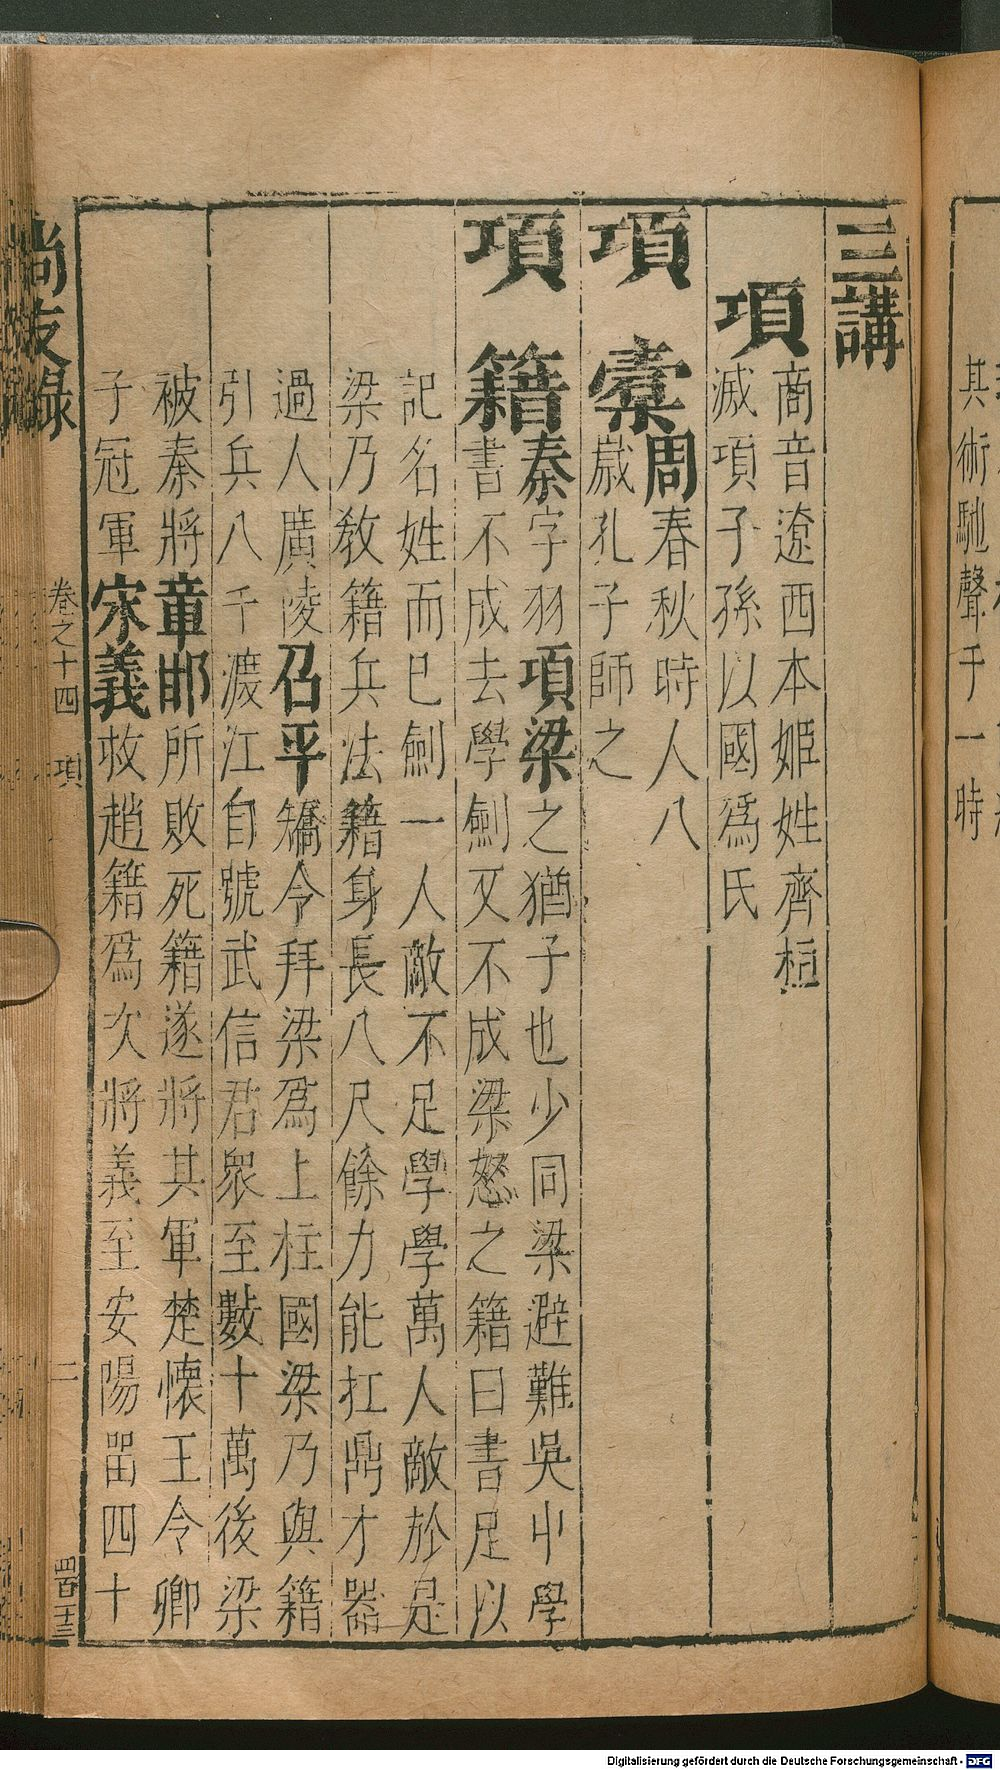 其術馳聲于一時
三講
項
商音遼西本姬姓齊桓
滅項子孫以國爲氏
項橐
周春秋時人八
歲孔子師之
項籍
秦字羽項梁之猶子也少同梁避難吳中學
書不成去學劍又不成梁怒之籍曰書足以
記名姓而已劍一人敵不足學學萬人敵於是
梁乃敎籍兵法籍身長八尺餘力能扛鼎才器
過人廣陵召平矯令拜梁爲上柱國梁乃與籍
引兵八千渡江自號武信君衆至數十萬後梁
被秦將章邯所敗死籍遂將其軍楚懷王令卿
子冠軍宋義救趙籍爲次將義至安陽畱四十
尚友錄
卷之十四 項 二
四百十三
Digitalisierung gefördert durch die Deutsche Forschungsgemeinschaft - DFG